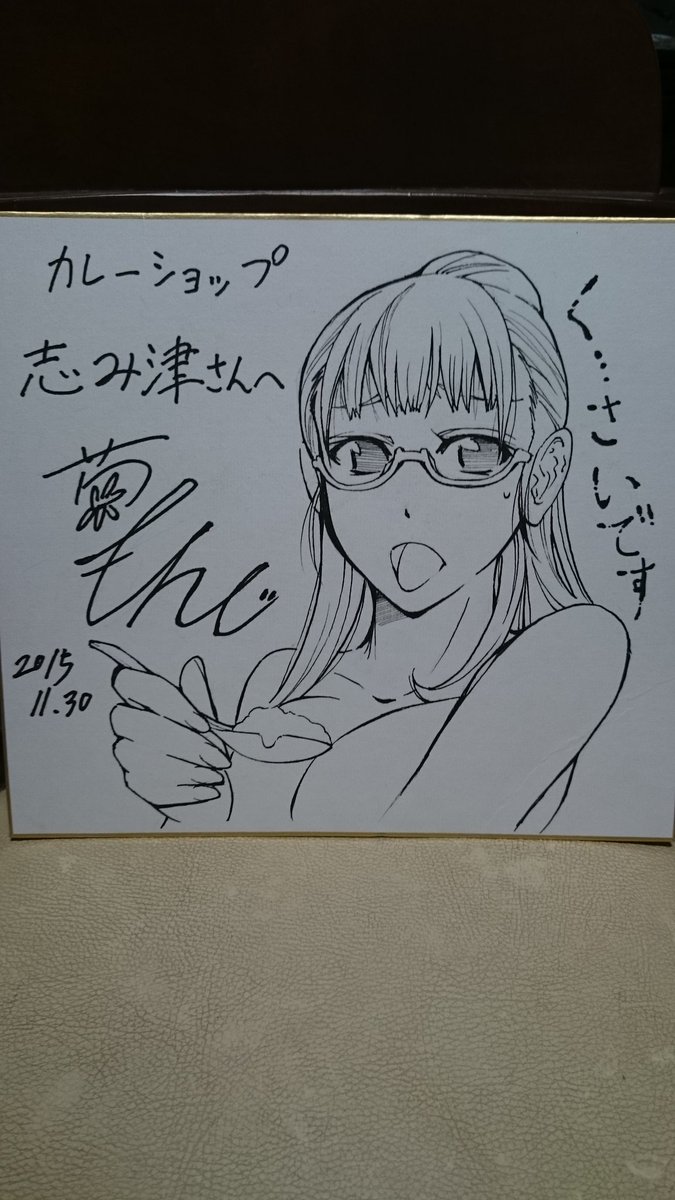 カレーショップ
志み津さんへ
もんじ
2015
11.30
く…さいです